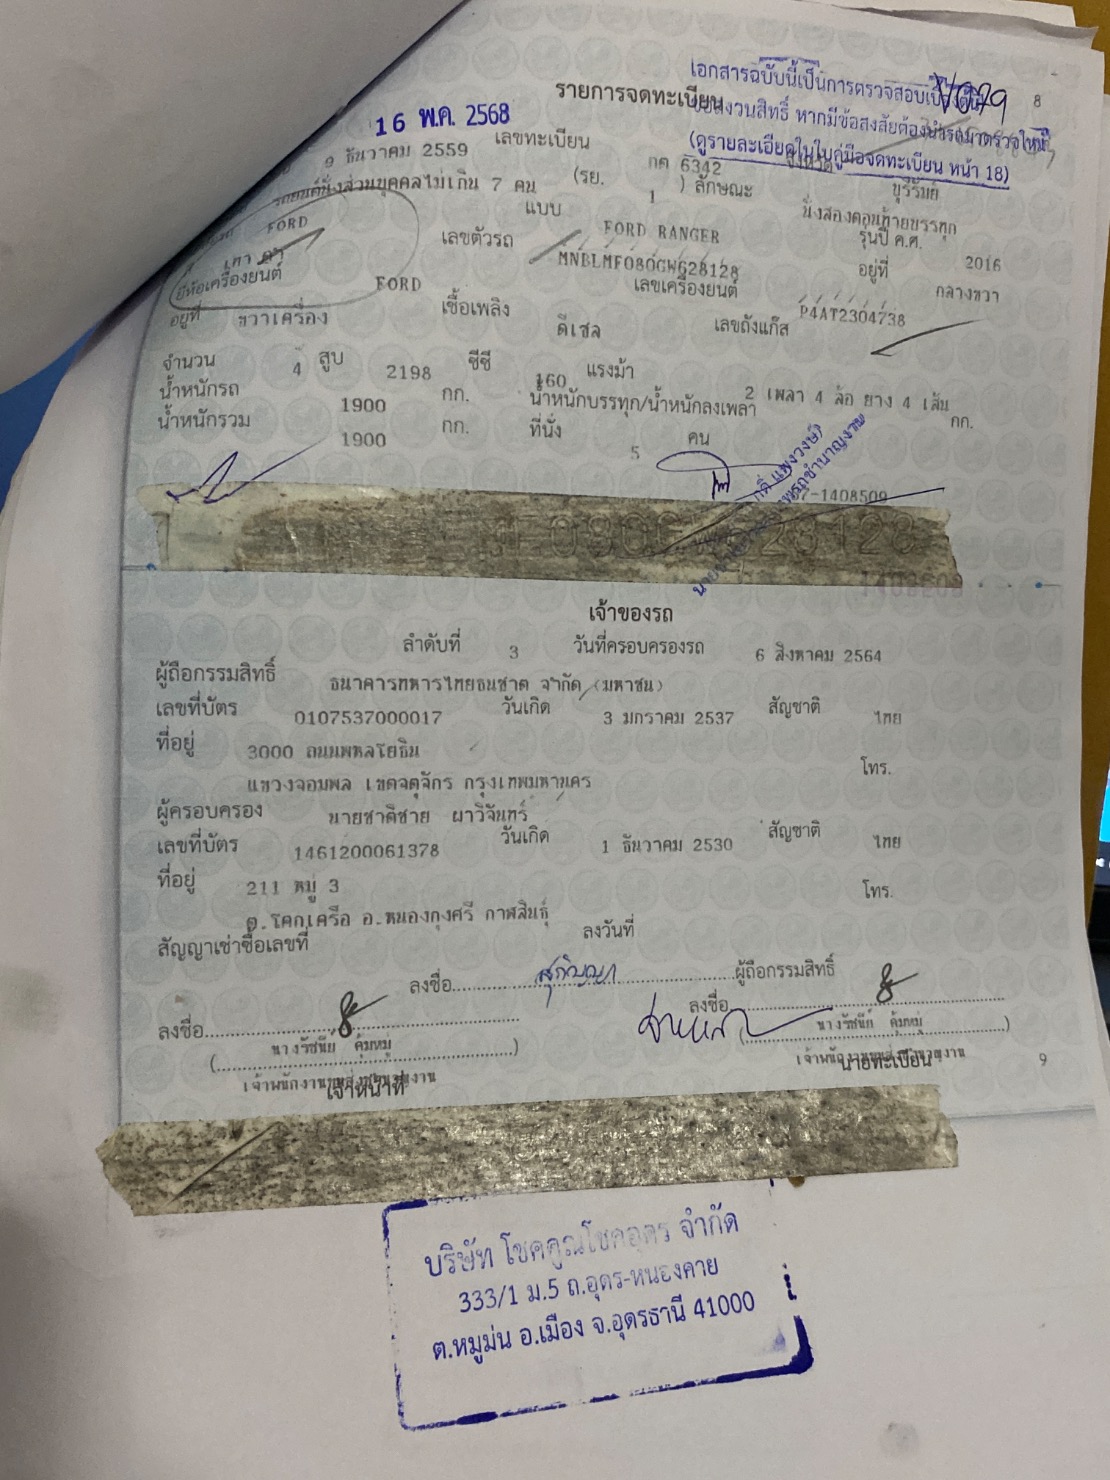 เอกสารฉบับนี้เป็นการตรวจสอบเบื้องต้น
8
รายการจดทะเบียน
ขอสงวนสิทธิ์ หากมีข้อสงสัยต้องนำรถมาตรวจใหม่
16 พ.ค. 2568
(ดูรายละเอียดในใบคู่มือจดทะเบียน หน้า 18)
9 ธันวาคม 2559 เลขทะเบียน กต 6342 จังหวัด บุรีรัมย์
รถยนต์นั่งส่วนบุคคลไม่เกิน 7 คน (รย. 1 ) ลักษณะ นั่งสองตอนท้ายบรรทุก
FORD แบบ FORD RANGER รุ่นปี ค.ศ. 2016
เทา ดำ เลขตัวรถ MNBLMFO80GW628128 อยู่ที่ กลางขวา
ยี่ห้อเครื่องยนต์ FORD เลขเครื่องยนต์ P4AT2304738
อยู่ที่ ขวาเครื่อง เชื้อเพลิง ดีเซล เลขถังแก๊ส
จำนวน 4 สูบ 2198 ซีซี 160 แรงม้า 2 เพลา 4 ล้อ ยาง 4 เส้น
น้ำหนักรถ 1900 กก. น้ำหนักบรรทุก/น้ำหนักลงเพลา กก.
น้ำหนักรวม 1900 กก. ที่นั่ง 5 คน
67-1408509
เจ้าของรถ
ลำดับที่ 3 วันที่ครอบครองรถ 6 สิงหาคม 2564
ผู้ถือกรรมสิทธิ์ ธนาคารทหารไทยธนชาต จำกัด (มหาชน)
เลขที่บัตร 0107537000017 วันเกิด 3 มกราคม 2537 สัญชาติ ไทย
ที่อยู่ 3000 ถนนพหลโยธิน
แขวงจอมพล เขตจตุจักร กรุงเทพมหานคร โทร.
ผู้ครอบครอง นายชาติชาย ผาวิจันทร์
เลขที่บัตร 1461200061378 วันเกิด 1 ธันวาคม 2530 สัญชาติ ไทย
ที่อยู่ 211 หมู่ 3 โทร.
ต.โคกเครือ อ.หนองกุงศรี กาฬสินธุ์
สัญญาเช่าซื้อเลขที่ ลงวันที่
ลงชื่อ ผู้ถือกรรมสิทธิ์
ลงชื่อ ลงชื่อ
(นางรัชนีย์ คุ้มหมู่) (นางรัชนีย์ คุ้มหมู่)
เจ้าพนักงานขนส่งชำนาญงาน เจ้าพนักงานขนส่งชำนาญงาน
เจ้าหน้าที่ นายทะเบียน 9
บริษัท โชคคูณโชคอุดร จำกัด
333/1 ม.5 ถ.อุดร-หนองคาย
ต.หมูม่น อ.เมือง จ.อุดรธานี 41000